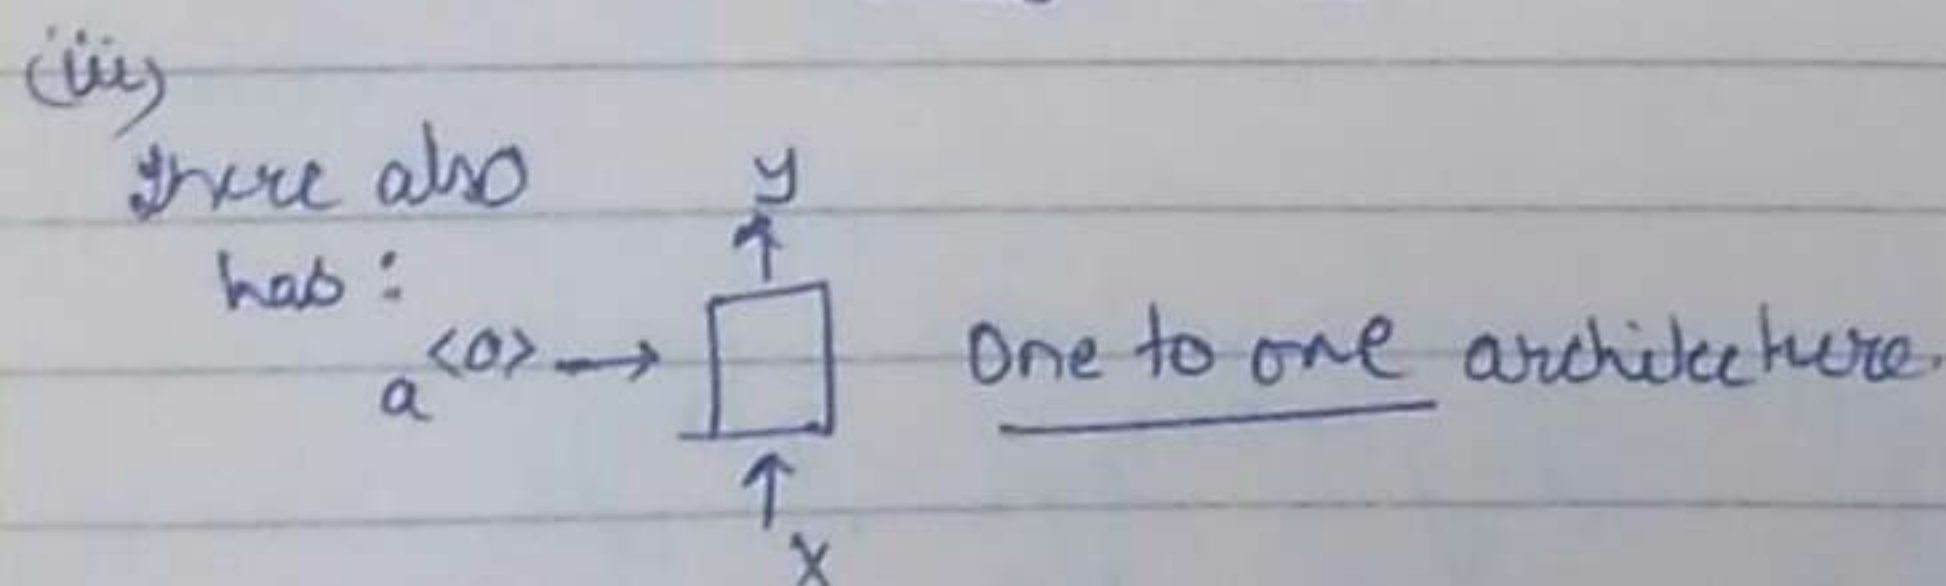 (iii)
There also
has :
y
a<0> → One to one architecture.
↑
x